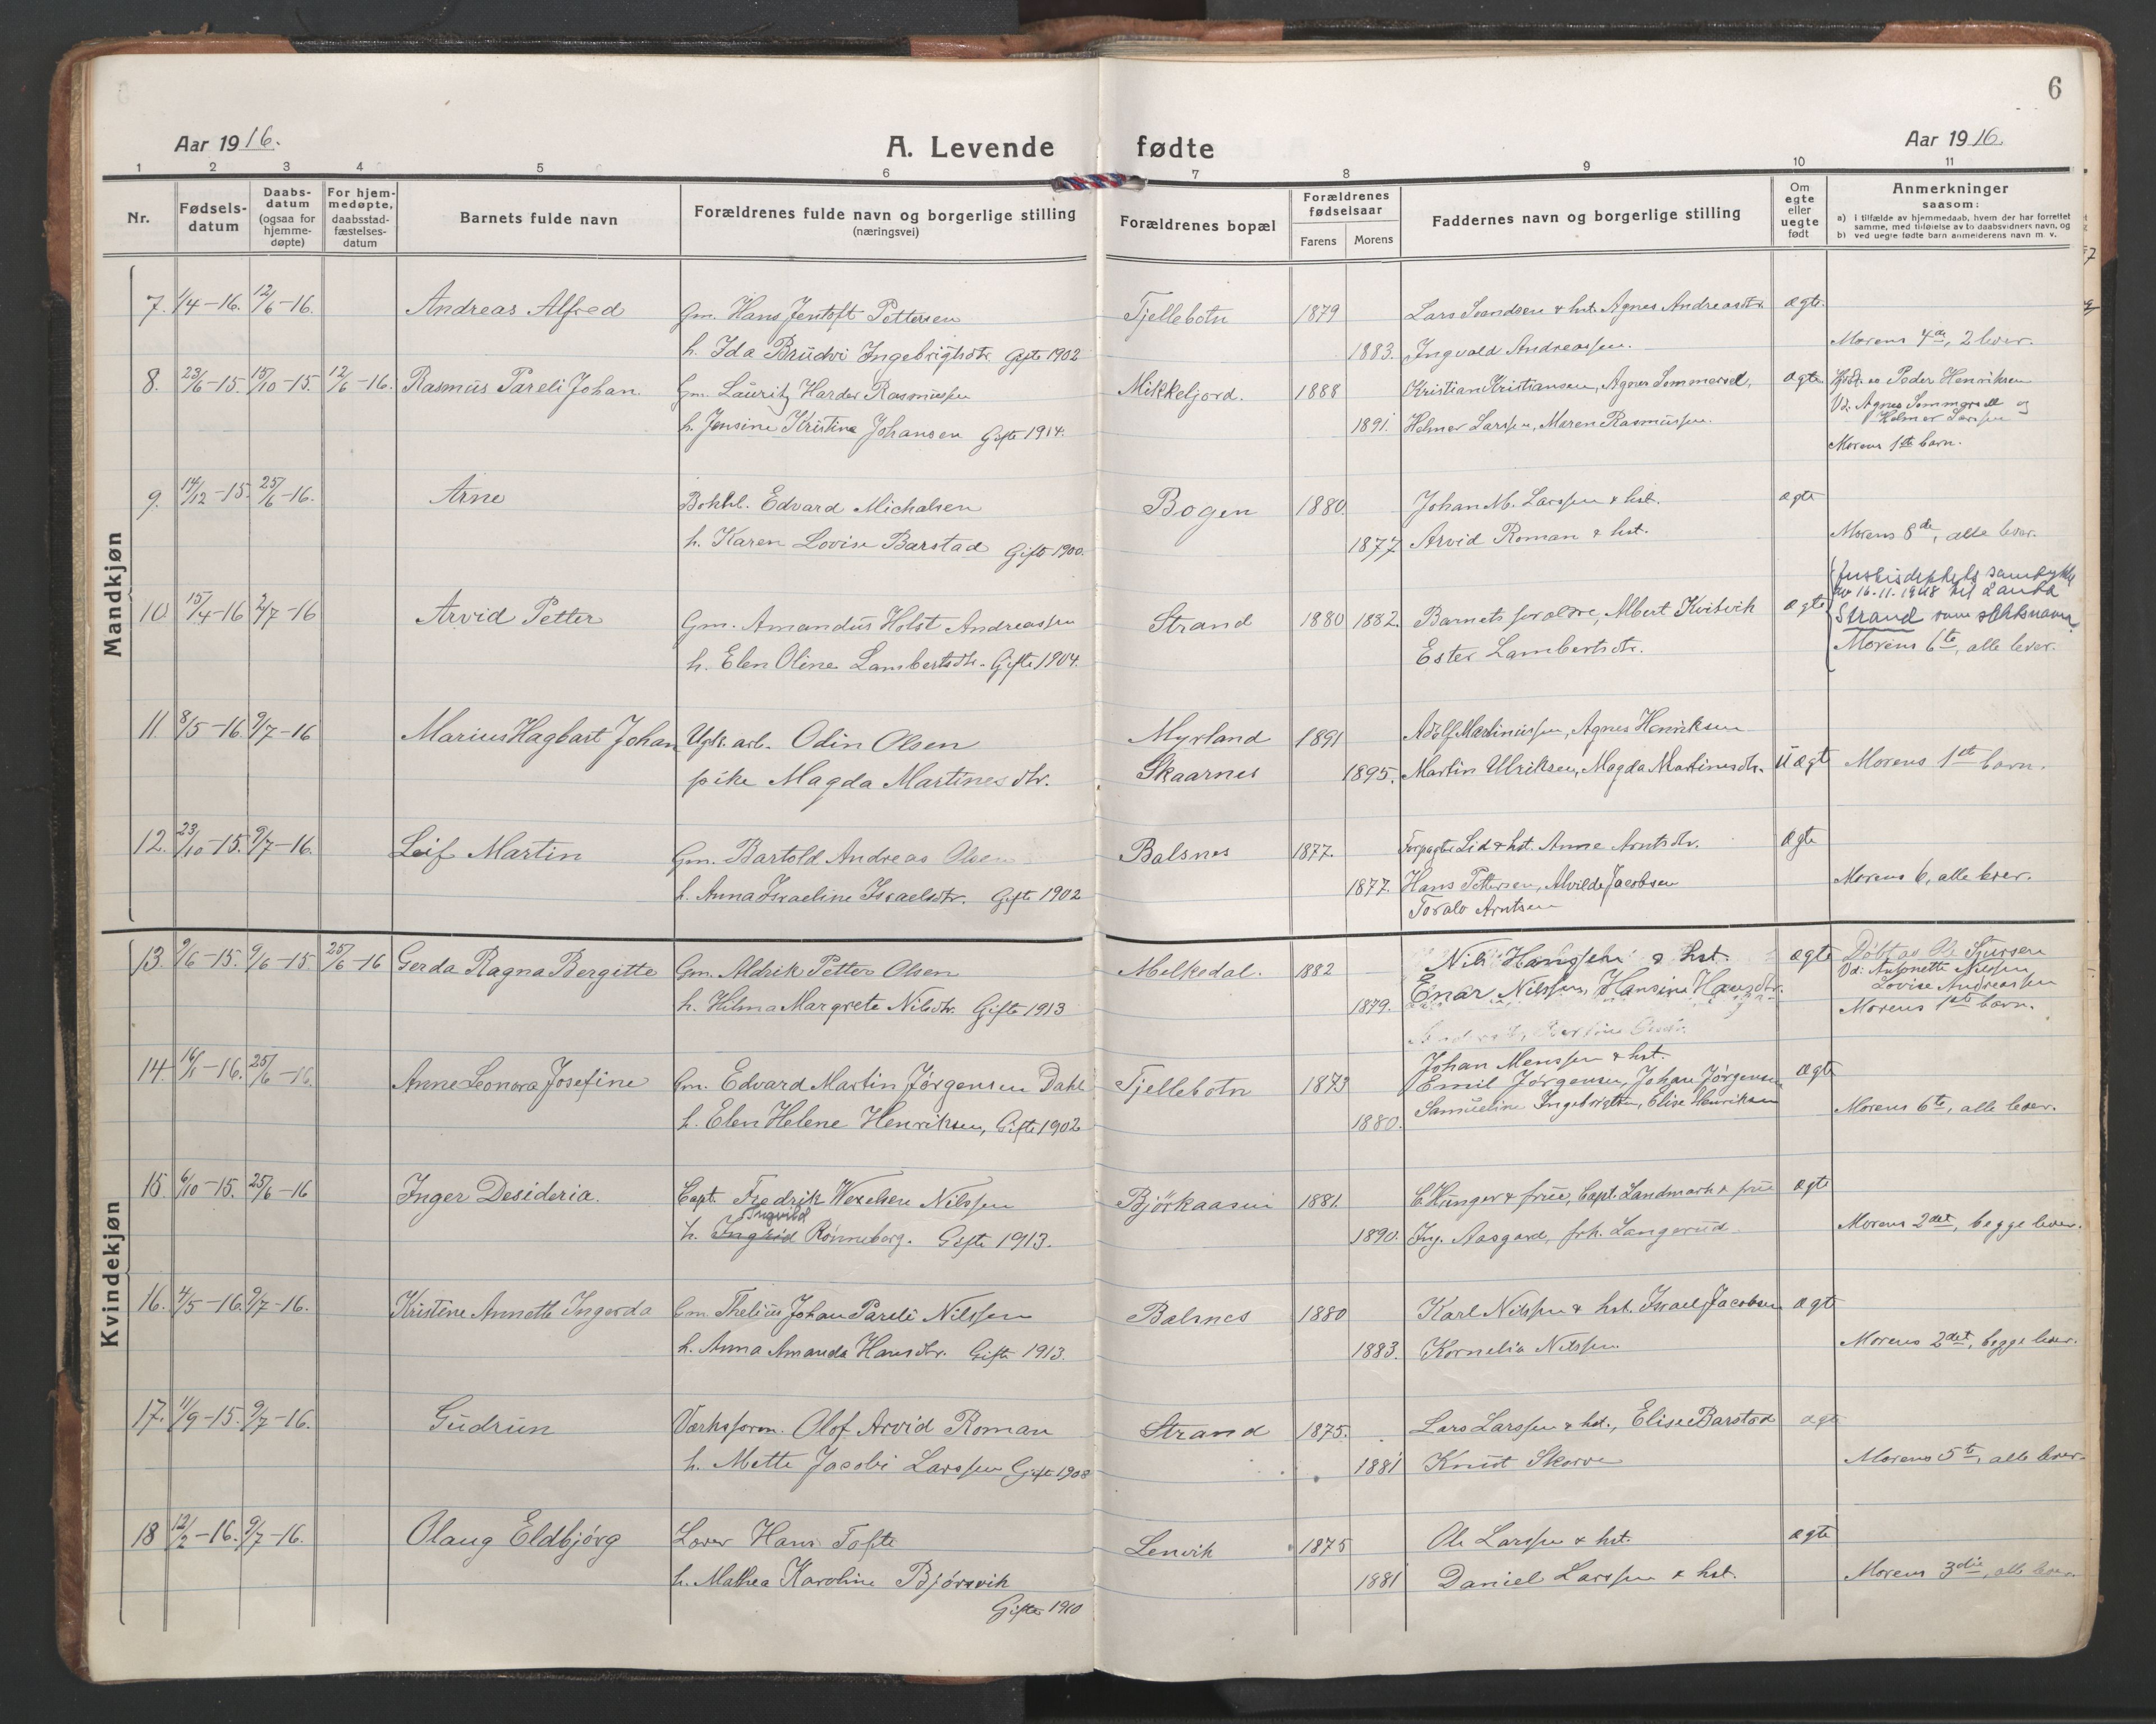 6
Aar 1916.
A. Levende fødte
Aar 1916.
1 2 3 4 5 6 7 8 9 10 11
Nr.
Fødsels-
datum
Daabs-
datum
(ogsaa for
hjemme-
døpte)
For hjem-
medøpte,
daabsstad-
fæstelses-
datum
Barnets fulde navn
Forældrenes fulde navn og borgerlige stilling
(næringsvei)
Forældrenes bopæl
Forældrenes
fødselsaar
Farens
Morens
Faddernes navn og borgerlige stilling
Om
egte
eller
uegte
født
Anmerkninger
saasom:
a) i tilfælde av hjemmedaab, hvem der har forrettet
samme, med tilføielse av to daabsvidners navn, og
b) ved uegte fødte barn anmelderens navn m. v.
Mandkjøn
7. 1/4-16. 12/6-16. Andreas Alfred Gm. Hans Jentoft Pettersen Tjellebotn 1879 Lars Svendsen & hst. Agnes Andreasdtr. ægte.
h. Ida Brudvi Ingebrigtsdtr. Gifte 1902 1883. Ingvald Andreassen. Morens 4de, 2 lever.
8. 23/6-15. 15/10-15. 12/6-16. Rasmus Pareli Johan. Gm. Lauritz Harder Rasmussen Mikkeljord. 1888 Kristian Kristiansen, Agnes Sommersel, ægte Hjd. av Peder Henriksen
Vd. Agnes Sommersell og
h. Jensine Kristine Johansen Gifte 1914. 1891. Helmer Larssen, Maren Rasmussen. Helmer Larssen
Morens 1ste barn.
9. 14/12-15. 25/6-16. Arne Bokhl. Edvard Michalsen Bogen 1880 Johan M. Larssen & hst. ægte
h. Karen Lovise Barstad Gifte 1900. 1877 Arvid Roman & hst. Morens 8de, alle lever.
Justisdeptets samtykke
av 16.11.1948 til å anta
10. 15/4-16 2/7-16 Arvid Petter Gm. Amandus Holst Andreassen Strand 1880 1882. Barnets foraldre, Albert Kvitvik ægte Strand som slektsnavn.
h. Elen Oline Lambertsdtr. Gifte 1904. Ester Lambertsdtr. Morens 6te, alle lever.
11. 8/5-16. 9/7-16 Marius Hagbart Johan Ugk. arb. Odin Olsen Myrland 1891 Adolf Martinussen, Agnes Henriksen
pike Magda Martinesdtr. Skaarnes 1895. Martin Ulriksen, Magda Martinesdtr. Uægt Morens 1ste barn.
12. 23/10-15. 9/7-16. Leif Martin Gm. Bartold Andreas Olsen Balsnes 1877. Forpagter Lid & hst. Anne Arntsdtr. ægte
h. Anna Israeline Israelsdtr. Gifte 1902 1877. Hans Pettersen, Alvilde Jacobsen Morens 6, alle lever.
Toralv Arntsen
Kvindekjøn
13. 9/6-15. 9/6-15 25/6-16 Gerda Ragna Bergitte Gm. Aldrik Petter Olsen Melkedal. 1882 Nils Hanssen & hst. ægte Døbt av Ole Sjursen
Vd: Antonette Nilssen
h. Hilma Margrete Nilsdtr. Gifte 1913 1879. Enar Nilssen, Hansine Hansdtr. Lovise Andreassen
Morens 1ste barn.
Johan Menssen & hst.
14. 16/1-16. 25/6-16. Anne Leonora Josefine Gm. Edvard Martin Jørgensen Dahl Tjellebotn 1873 Emil Jørgensen, Johan Jørgensen ægte
h. Elen Helene Henriksen, Gifte 1902 1880. Samueline Ingebrigtsen, Elise Henriksen Morens 6te, alle lever.
15. 6/10-15. 25/6-16 Inger Desideria. Capt. Fredrik Wexelsen Nilssen Björkaasen 1881. C. Hunger & frue, Capt. Landmark & frue ægt
Ingvild
h. Ingrid Rönneberg. Gifte 1913. 1890. Ing. Aasgard, frk. Langerud Morens 2det, begge lever.
16. 4/5-16. 9/7-16. Kristine Annette Ingarda Gm. Thelius Johan Pareli Nilssen Balsnes 1880 Karl Nilssen & hst. Israel Jacobsen ægt
h. Anna Amanda Hansdtr. Gifte 1913. 1883. Kornelia Nilssen Morens 2det, begge lever.
17. 11/9-15. 9/7-16. Gudrun Verksform. Olof Arvid Roman Strand 1875. Lars Larssen & hst., Elise Barstad ægt
h. Mette Jacobi Larssen Gifte 1908 1881 Knut Skorve Morens 5te, alle lever.
18 12/2-16. 9/7-16. Olaug Eldbjørg Lærer Hans Tofte Lenvik 1875 Ole Larssen & hst. ægte
h. Mathea Karoline Bjørsvik 1881 Daniel Larssen & hst. Morens 3die, alle lever.
Gifte 1910